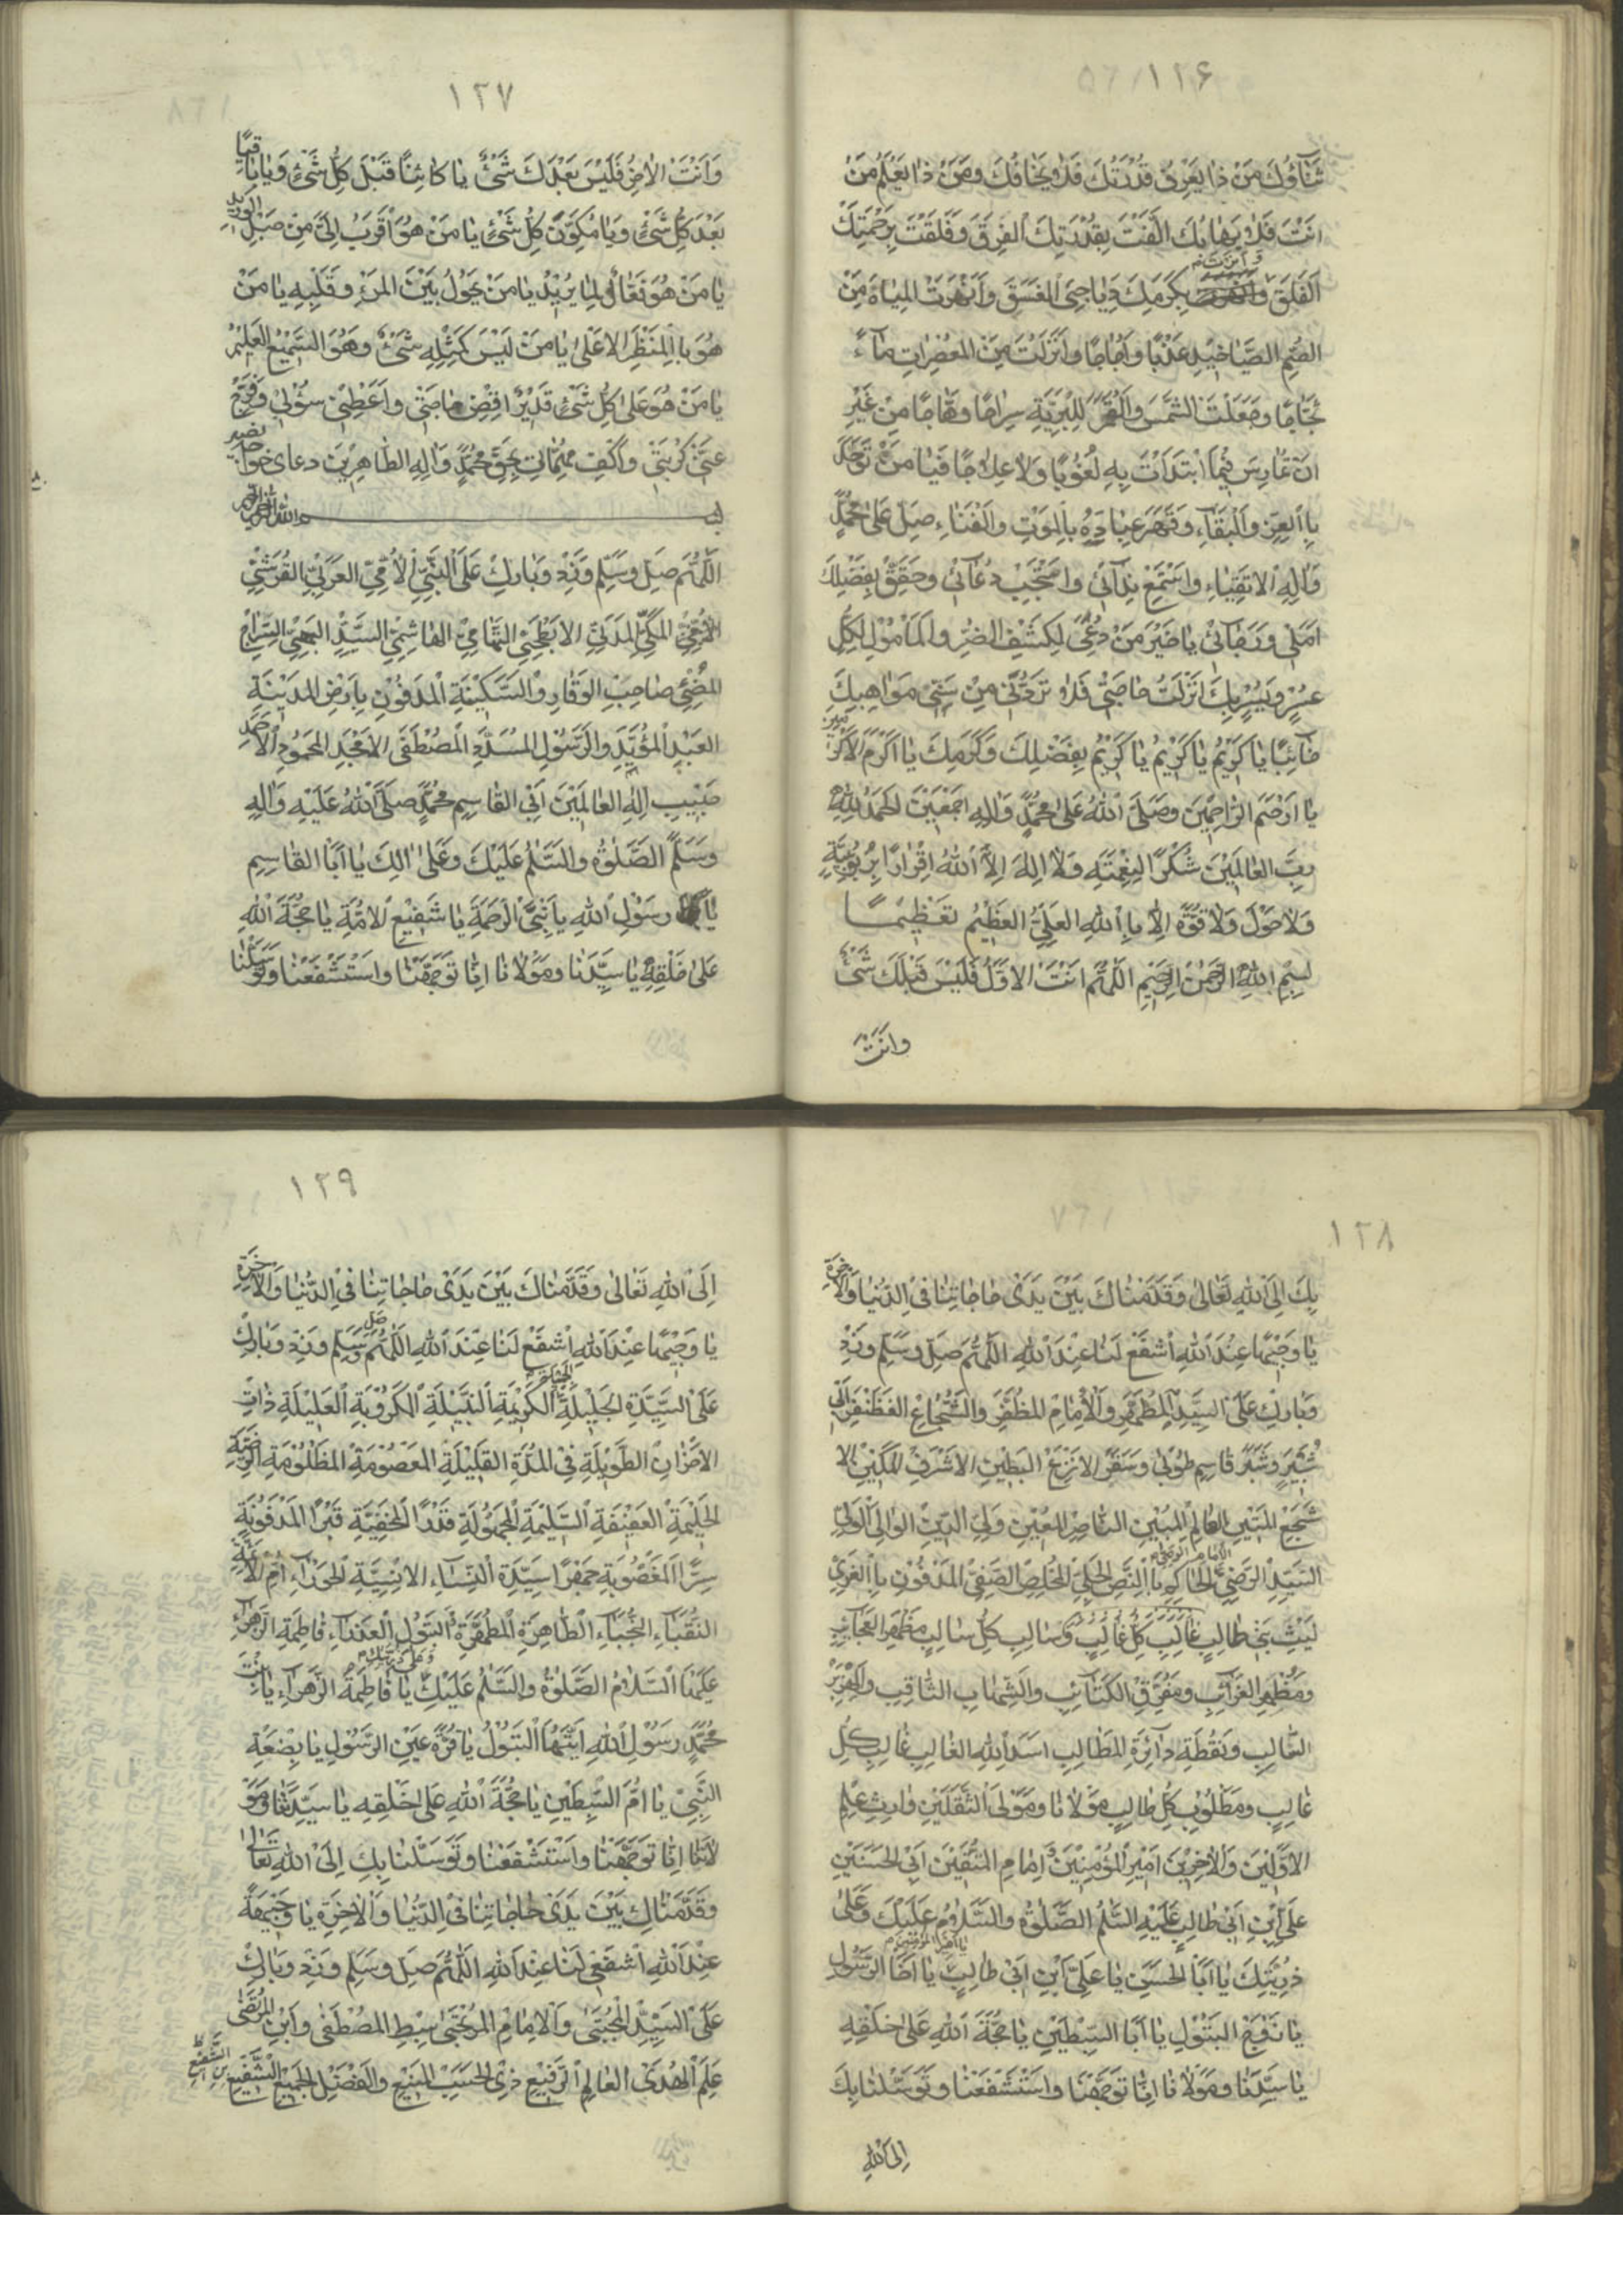 ١٢۶
ثَنَاؤُكَ مَنْ ذَا يَعْرِفُ قُدْرَتَكَ فَلَا يَخَافُكَ وَمَنْ ذَا يَعْلَمُ مَنْ
اَنْتَ فَلَا يَهَابُكَ اَلَّفْتَ بِقُدْرَتِكَ الْفِرَقَ وَفَلَقْتَ بِرَحْمَتِكَ
الْفَلَقَ وَاَنَرْتَ بِكَرَمِكَ دَيَاجِىَ الْغَسَقِ وَاَنْهَرْتَ الْمِيَاهَ مِنَ
الصُّمِّ الصَّيَاخِيْدِ عَذْبًا وَاُجَاجًا وَاَنْزَلْتَ مِنَ الْمُعْصِرَاتِ مَآءً
ثَجَّاجًا وَجَعَلْتَ الشَّمْسَ وَالْقَمَرَ لِلْبَرِيَّةِ سِرَاجًا وَهَّاجًا مِنْ غَيْرِ
اَنْ تُمَارِسَ فِيْمَا ابْتَدَاْتَ بِهِ لُغُوْبًا وَلَا عِلَاجًا فَيَا مَنْ تَوَحَّدَ
بِالْعِزِّ وَالْبَقَاءِ وَقَهَرَ عِبَادَهُ بِالْمَوْتِ وَالْفَنَاءِ صَلِّ عَلٰى مُحَمَّدٍ
وَاٰلِهِ الْاَتْقِيَاءِ وَاسْتَمِعْ نِدَآئِىْ وَاسْتَجِبْ دُعَآئِىْ وَحَقِّقْ بِفَضْلِكَ
اَمَلِىْ وَرَجَآئِىْ يَا خَيْرَ مَنْ دُعِىَ لِكَشْفِ الضُّرِّ وَالْمَاْمُوْلِ لِكُلِّ
عُسْرٍ وَيُسْرٍ بِكَ اَنْزَلْتُ حَاجَتِىْ فَلَا تَرُدَّنِىْ مِنْ سَنِىِّ مَوَاهِبِكَ
خَآئِبًا يَا كَرِيْمُ يَا كَرِيْمُ يَا كَرِيْمُ بِفَضْلِكَ وَكَرَمِكَ يَا اَكْرَمَ الْاَكْرَمِيْنَ
يَا اَرْحَمَ الرَّاحِمِيْنَ وَصَلَّى اللّٰهُ عَلٰى مُحَمَّدٍ وَاٰلِهِ اَجْمَعِيْنَ اَلْحَمْدُ لِلّٰهِ
رَبِّ الْعَالَمِيْنَ شُكْرًا لِنِعْمَتِهِ وَلَا اِلٰهَ اِلَّا اللّٰهُ اِقْرَارًا بِرُبُوْبِيَّتِهِ
وَلَا حَوْلَ وَلَا قُوَّةَ اِلَّا بِاللّٰهِ الْعَلِىِّ الْعَظِيْمِ تَعْظِيْمًا
بِسْمِ اللّٰهِ الرَّحْمٰنِ الرَّحِيْمِ اَللّٰهُمَّ اَنْتَ الْاَوَّلُ فَلَيْسَ قَبْلَكَ شَىْءٌ
وَاَنْتَ
١٢٧
وَاَنْتَ الْاٰخِرُ فَلَيْسَ بَعْدَكَ شَىْءٌ يَا كَائِنًا قَبْلَ كُلِّ شَىْءٍ وَيَا بَاقِيًا
بَعْدَ كُلِّ شَىْءٍ وَيَا مُكَوِّنَ كُلِّ شَىْءٍ يَا مَنْ هُوَ اَقْرَبُ اِلَىَّ مِنْ حَبْلِ الْوَرِيْدِ
يَا مَنْ هُوَ فَعَّالٌ لِمَا يُرِيْدُ يَا مَنْ يَحُوْلُ بَيْنَ الْمَرْءِ وَقَلْبِهِ يَا مَنْ
هُوَ بِالْمَنْظَرِ الْاَعْلٰى يَا مَنْ لَيْسَ كَمِثْلِهِ شَىْءٌ وَهُوَ السَّمِيْعُ الْعَلِيْمُ
يَا مَنْ هُوَ عَلٰى كُلِّ شَىْءٍ قَدِيْرٌ اِقْضِ حَاجَتِىْ وَاَعْطِنِىْ سُؤْلِىْ وَفَرِّجْ
عَنِّىْ كُرْبَتِىْ وَاكْفِ مُهِمَّاتِىْ بِحَقِّ مُحَمَّدٍ وَاٰلِهِ الطَّاهِرِيْنَ دعاى خواجه نصير
بسم الله الرحمن الرحيم
اَللّٰهُمَّ صَلِّ وَسَلِّمْ وَزِدْ وَبَارِكْ عَلَى النَّبِىِّ الْاُمِّىِّ الْعَرَبِىِّ الْقُرَشِىِّ
الْاُمِّىِّ الْمَكِّىِّ الْمَدَنِىِّ الْاَبْطَحِىِّ التِّهَامِىِّ الْهَاشِمِىِّ السَّيِّدِ الْبَهِىِّ السِّرَاجِ
الْمُضِىْءِ صَاحِبِ الْوَقَارِ وَالسَّكِيْنَةِ الْمَدْفُوْنِ بِاَرْضِ الْمَدِيْنَةِ
الْعَبْدِ الْمُؤَيَّدِ وَالرَّسُوْلِ الْمُسَدَّدِ الْمُصْطَفَى الْاَمْجَدِ الْمَحْمُوْدِ الْاَحْمَدِ
حَبِيْبِ اِلٰهِ الْعَالَمِيْنَ اَبِى الْقَاسِمِ مُحَمَّدٍ صَلَّى اللّٰهُ عَلَيْهِ وَاٰلِهِ
وَسَلَّمَ الصَّلٰوةُ وَالسَّلٰمُ عَلَيْكَ وَعَلٰى اٰلِكَ يَا اَبَا الْقَاسِمِ
يَا رَسُوْلَ اللّٰهِ يَا نَبِىَّ الرَّحْمَةِ يَا شَفِيْعَ الْاُمَّةِ يَا حُجَّةَ اللّٰهِ
عَلٰى خَلْقِهِ يَا سَيِّدَنَا وَمَوْلَانَا اِنَّا تَوَجَّهْنَا وَاسْتَشْفَعْنَا وَتَوَسَّلْنَا
١٢٨
بِكَ اِلَى اللّٰهِ تَعَالٰى وَقَدَّمْنَاكَ بَيْنَ يَدَىْ حَاجَاتِنَا فِى الدُّنْيَا وَالْاٰخِرَةِ
يَا وَجِيْهًا عِنْدَ اللّٰهِ اشْفَعْ لَنَا عِنْدَ اللّٰهِ اَللّٰهُمَّ صَلِّ وَسَلِّمْ وَزِدْ
وَبَارِكْ عَلَى السَّيِّدِ الْمُطَهَّرِ وَالْاِمَامِ الْمُظَفَّرِ وَالشُّجَاعِ الْغَضَنْفَرِ اَبِىْ
شُبَيْرٍ وَشَبَّرَ قَاسِمِ طُوْبٰى وَسَقَرَ الْاَنْزَعِ الْبَطِيْنِ الْاَشْرَفِ الْمَكِيْنِ الْاَ
شْجَعِ الْمَتِيْنِ الْعَالِمِ الْمُبِيْنِ النَّاصِرِ الْمُعِيْنِ وَلِىِّ الدِّيْنِ الْوَالِى الْوَلِىِّ
السَّيِّدِ الرَّضِىِّ الْاِمَامِ الْوَصِىِّ الْحَاكِمِ بِالنَّصِّ الْجَلِىِّ الْمُخْلِصِ الصَّفِىِّ الْمَدْفُوْنِ بِالْغَرِىِّ
لَيْثِ بَنِىْ غَالِبٍ غَالِبِ كُلِّ غَالِبٍ وَسَالِبِ كُلِّ سَالِبٍ مَظْهَرِ الْعَجَائِبِ
وَمُظْهِرِ الْغَرَائِبِ وَمُفَرِّقِ الْكَتَائِبِ وَالشِّهَابِ الثَّاقِبِ وَالْهِزَبْرِ
السَّالِبِ وَنُقْطَةِ دَائِرَةِ الْمَطَالِبِ اَسَدِ اللّٰهِ الْغَالِبِ غَالِبِ كُلِّ
غَالِبٍ وَمَطْلُوْبِ كُلِّ طَالِبٍ مَوْلَانَا وَمَوْلَى الثَّقَلَيْنِ وَارِثِ عِلْمِ
الْاَوَّلِيْنَ وَالْاٰخِرِيْنَ اَمِيْرِ الْمُؤْمِنِيْنَ وَاِمَامِ الْمُتَّقِيْنَ اَبِى الْحَسَنَيْنِ
عَلِىِّ ابْنِ اَبِىْ طَالِبٍ عَلَيْهِ السَّلٰمُ الصَّلٰوةُ وَالسَّلَامُ عَلَيْكَ وَعَلٰى
ذُرِّيَّتِكَ يَا اَبَا الْحَسَنِ يَا اَمِيْرَ الْمُؤْمِنِيْنَ يَا عَلِىَّ ابْنَ اَبِىْ طَالِبٍ يَا اَخَا الرَّسُوْلِ
يَا زَوْجَ الْبَتُوْلِ يَا اَبَا السِّبْطَيْنِ يَا حُجَّةَ اللّٰهِ عَلٰى خَلْقِهِ
يَا سَيِّدَنَا وَمَوْلَانَا اِنَّا تَوَجَّهْنَا وَاسْتَشْفَعْنَا وَتَوَسَّلْنَا بِكَ
اِلَى اللّٰهِ
١٢٩
اِلَى اللّٰهِ تَعَالٰى وَقَدَّمْنَاكَ بَيْنَ يَدَىْ حَاجَاتِنَا فِى الدُّنْيَا وَالْاٰخِرَةِ
يَا وَجِيْهًا عِنْدَ اللّٰهِ اشْفَعْ لَنَا عِنْدَ اللّٰهِ اَللّٰهُمَّ صَلِّ وَسَلِّمْ وَزِدْ وَبَارِكْ
عَلَى السَّيِّدَةِ الْجَلِيْلَةِ الْجَمِيْلَةِ الْكَرِيْمَةِ النَّبِيْلَةِ الْمَكْرُوْبَةِ الْعَلِيْلَةِ ذَاتِ
الْاَحْزَانِ الطَّوِيْلَةِ فِى الْمُدَّةِ الْقَلِيْلَةِ الْمَعْصُوْمَةِ الْمَظْلُوْمَةِ الرَّضِيَّةِ
الْحَلِيْمَةِ الْعَفِيْفَةِ السَّلِيْمَةِ الْمَجْهُوْلَةِ قَدْرًا الْمَخْفِيَّةِ قَبْرًا الْمَدْفُوْنَةِ
سِرًّا الْمَغْصُوْبَةِ جَهْرًا سَيِّدَةِ النِّسَاءِ الْاِنْسِيَّةِ الْحَوْرَاءِ اُمِّ الْاَئِمَّةِ
النُّقَبَاءِ النُّجَبَاءِ الطَّاهِرَةِ الْمُطَهَّرَةِ الْبَتُوْلِ الْعَذْرَاءِ فَاطِمَةَ الزَّهْرَاءِ
عَلَيْهَا السَّلَامُ الصَّلٰوةُ وَالسَّلٰمُ عَلَيْكِ وَعَلٰى ذُرِّيَّتِكِ يَا فَاطِمَةُ الزَّهْرَاءُ يَا بِنْتَ
مُحَمَّدٍ رَسُوْلِ اللّٰهِ اَيَّتُهَا الْبَتُوْلُ يَا قُرَّةَ عَيْنِ الرَّسُوْلِ يَا بِضْعَةَ
النَّبِىِّ يَا اُمَّ السِّبْطَيْنِ يَا حُجَّةَ اللّٰهِ عَلٰى خَلْقِهِ يَا سَيِّدَتَنَا وَمَوْ
لَاتَنَا اِنَّا تَوَجَّهْنَا وَاسْتَشْفَعْنَا وَتَوَسَّلْنَا بِكِ اِلَى اللّٰهِ تَعَالٰى
وَقَدَّمْنَاكِ بَيْنَ يَدَىْ حَاجَاتِنَا فِى الدُّنْيَا وَالْاٰخِرَةِ يَا وَجِيْهَةً
عِنْدَ اللّٰهِ اشْفَعِىْ لَنَا عِنْدَ اللّٰهِ اَللّٰهُمَّ صَلِّ وَسَلِّمْ وَزِدْ وَبَارِكْ
عَلَى السَّيِّدِ الْمُجْتَبٰى وَالْاِمَامِ الْمُرْتَجٰى سِبْطِ الْمُصْطَفٰى وَابْنِ الْمُرْتَضٰى
عَلَمِ الْهُدَى الْعَالِمِ الرَّفِيْعِ ذِى الْحَسَبِ الْمَنِيْعِ وَالْفَضْلِ الْجَمِيْعِ الشَّفِيْعِ